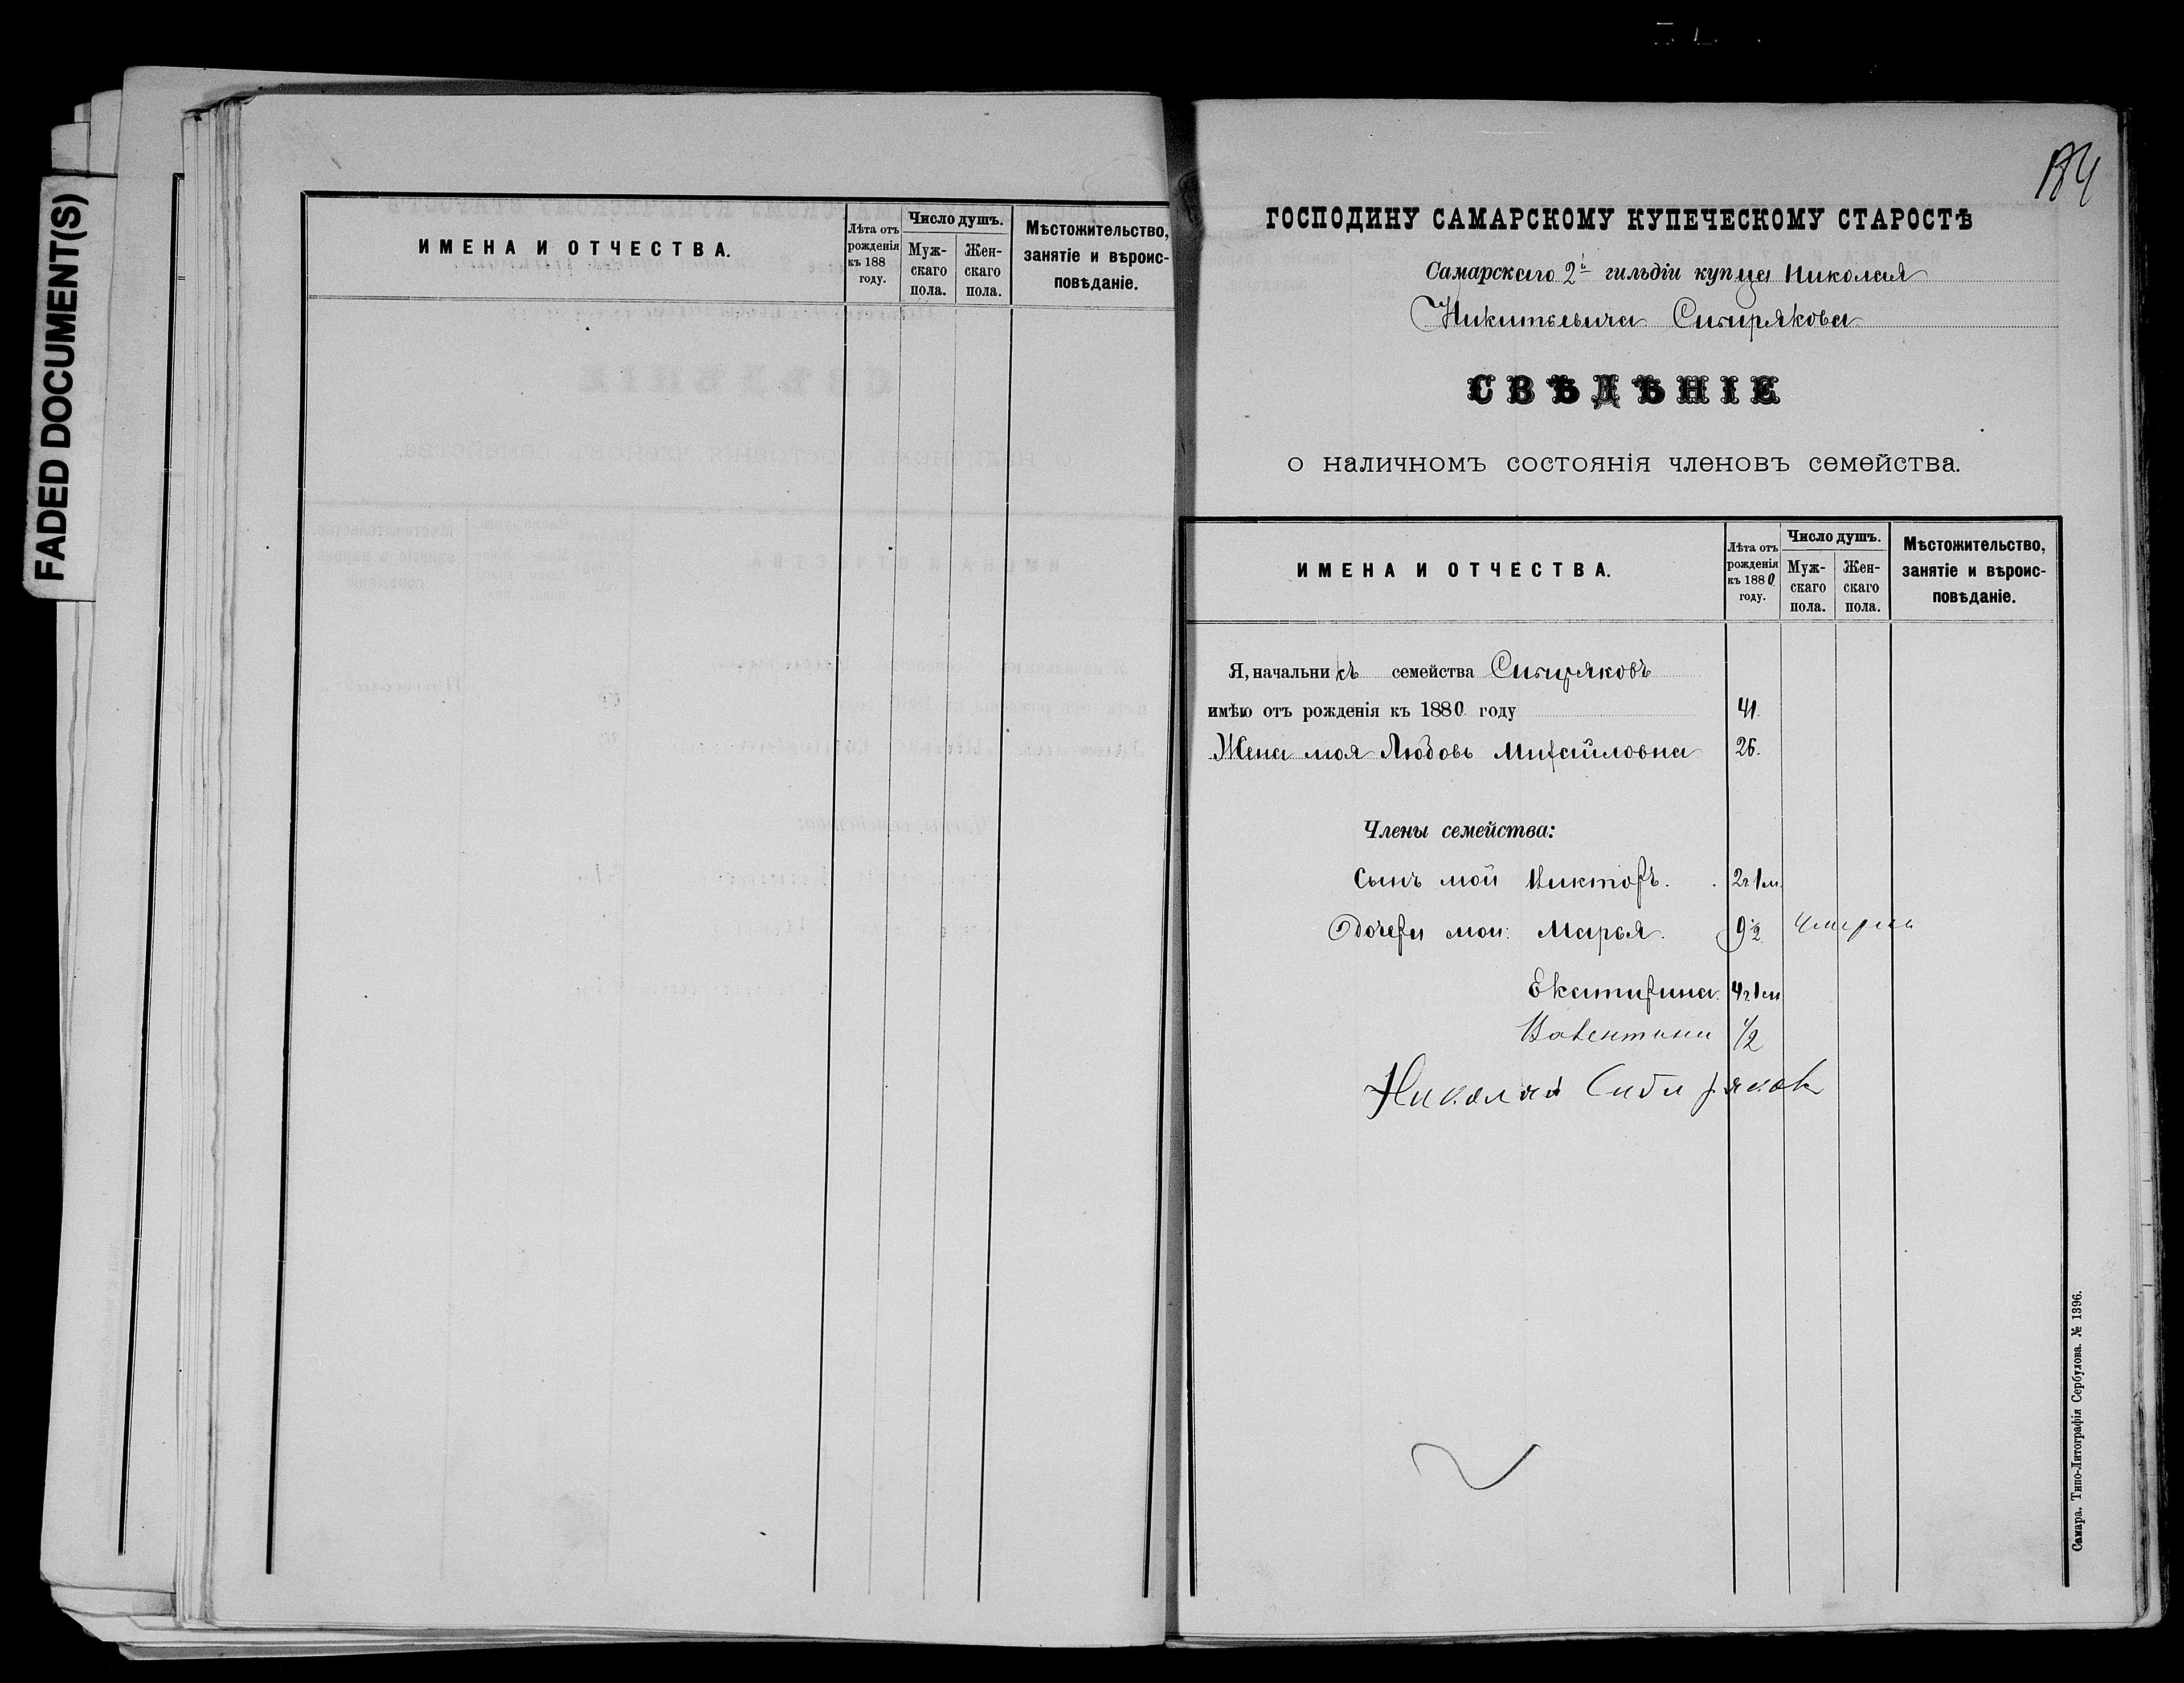 FADED DOCUMENT(S)
ИМЕНА И ОТЧЕСТВА.
Лѣта отъ
рожденія
къ 188
году.
Число душъ.
Муж-
скаго
пола.
Жен-
скаго
пола.
Мѣстожительство,
занятіе и вѣроис-
повѣданіе.
184
ГОСПОДИНУ САМАРСКОМУ КУПЕЧЕСКОМУ СТАРОСТѢ
Самарскаго 2й гильдіи купца Николая
Никитьевича Сибирякова
СВѢДѢНІЕ
о наличномъ состоянія членовъ семейства.
ИМЕНА И ОТЧЕСТВА.
Лѣта отъ
рожденія
къ 1880
году.
Число душъ.
Муж-
скаго
пола.
Жен-
скаго
пола.
Мѣстожительство,
занятіе и вѣроис-
повѣданіе.
Я, начальникъ семейства Сибиряковъ
имѣю отъ рожденія къ 1880 году 41.
Жена моя Любовь Михайловна 26.
Члены семейства:
Сынъ мой Викторъ. 2г 1м
Дочери мои: Марья. 9 1/2
Екатирина. 4г 1м
Валентина 1/2
Николай Сибиряков
Самара. Типо-Литографія Сербулова. № 1396.